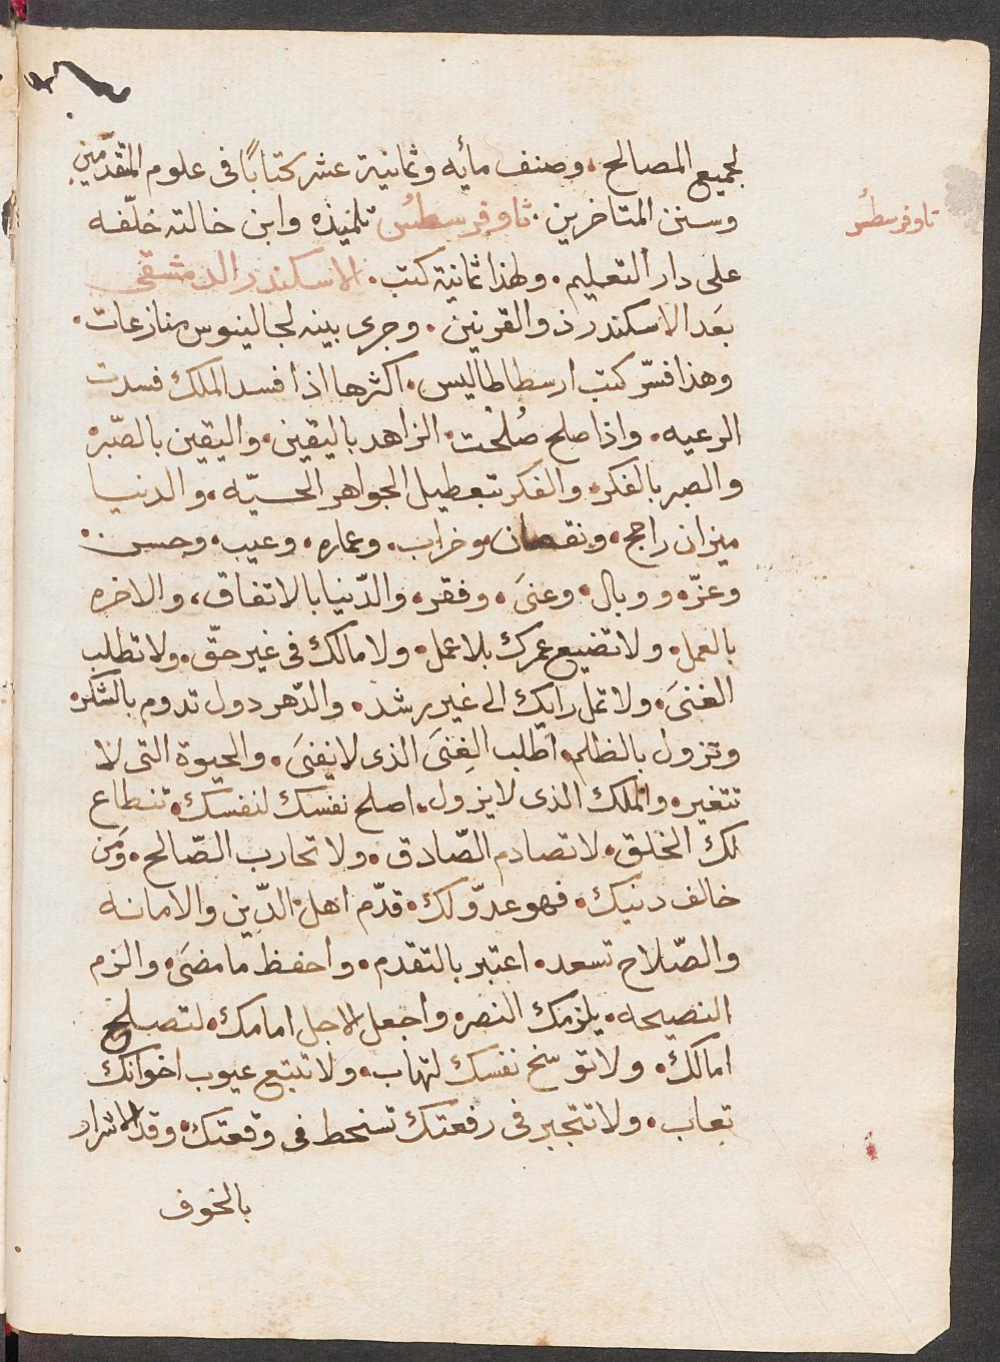 لجميع المصالح. وصنف مأيه وثمانية عشر كتاباً فى علوم المتقدّمين
وسنن المتاخرين. ثاوفرسطُس تلميذه وابن خالته خلّفه
ثاوفرسطُس
على دار التعليم. ولهذا ثمانية كتب. الاسكندر الدمشقى
بعَد الاسكندر ذو القرنين. وجرى بينه لجالينوس منازعات.
وهذا فسّر كتب ارسطاطاليس. اكثرها اذا فسد الملك فسدت
الرعيه. واذا صلح صُلحت. الزاهد باليقين. واليقين بالصّبر.
والصبر بالفكر. والفكر بتعطيل الجواهر الحسيّه. والدنيا
ميزان راجح. ونقصان وخراب. وعماره. وعيب. وحسن.
وعزّه ووبال. وغنىَ. وفقر. والدّنيا بالاتفاق، والاخره
بالعمل. ولا تضيع عمرك بلا عمل. ولا مالك فى غير حقّ. ولا تطلب
الغنىَ. ولا تمل رايك الى غير رشد. والدّهر دول تدوم بالشكر.
وتزول بالظلم. اطلب الغِنىَ الذى لا يفنىَ. والحيوة التى لا
تتغير. والملك الذى لا يزول. اصلح نفسك لنفسك. تنطاع
لك الخلق. لا تصادم الصّادق. ولا تحارب الصّالح. ومَن
خالف دنيك. فهو عدّو لك. قدّم اهل الدّين والامانه
والصّلاح تسعد. اعتبر بالتقدم. واحفظ ما مضىَ. والزم
النصيحه. يلزمك النصر. واجعل الاجل امامك. لتصلح
امالك. ولا توسخ نفسك لتهاب. ولا تتبع عيوب اخوانك
تعاب. ولا تتجبر فى رفعتك تسنحط فى وقعتك. وقد الاشرار
بالخوف